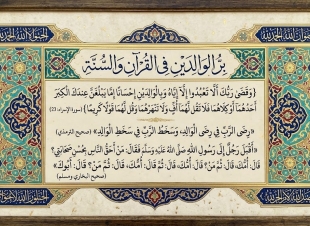 بِرُّ الوَالِدَيْنِ فِي القُرْآنِ وَالسُّنَّةِ
﴿وَقَضَى رَبُّكَ أَلَّا تَعْبُدُوا إِلَّا إِيَّاهُ وَبِالْوَالِدَيْنِ إِحْسَانًا إِمَّا يَبْلُغَنَّ عِندَكَ الْكِبَرَ
أَحَدُهُمَا أَوْ كِلَاهُمَا فَلَا تَقُل لَّهُمَا أُفٍّ وَلَا تَنْهَرْهُمَا وَقُل لَّهُمَا قَوْلًا كَرِيمًا﴾ (سورة الإسراء: 23)
«رِضَى الرَّبِّ فِي رِضَى الْوَالِدِ، وَسَخَطُ الرَّبِّ فِي سَخَطِ الْوَالِدِ» (صحيح الترمذي)
«أَقْبَلَ رَجُلٌ إِلَى رَسُولِ اللهِ صَلَّى اللهُ عَلَيْهِ وَسَلَّمَ فَقَالَ: مَنْ أَحَقُّ النَّاسِ بِحُسْنِ صَحَابَتِي؟
قَالَ: أُمُّكَ، قَالَ: ثُمَّ مَنْ؟ قَالَ: أُمُّكَ، قَالَ: ثُمَّ مَنْ؟ قَالَ: أُمُّكَ، قَالَ: ثُمَّ مَنْ؟ قَالَ: أَبُوكَ»
(صحيح البخاري ومسلم)